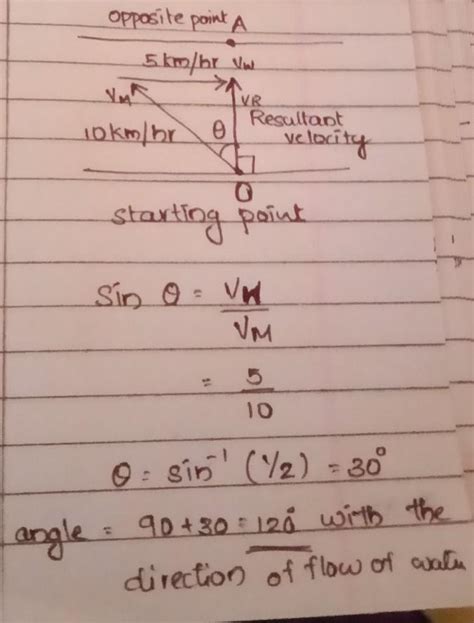 opposite point A
5km/hr Vw
VM
VR
10km/hr
θ
Resultant
velocity
O
starting point
Sin θ = VW
VM
= 5
10
θ = sin⁻¹ (1/2) = 30°
angle = 90+30=120° with the
direction of flow of water